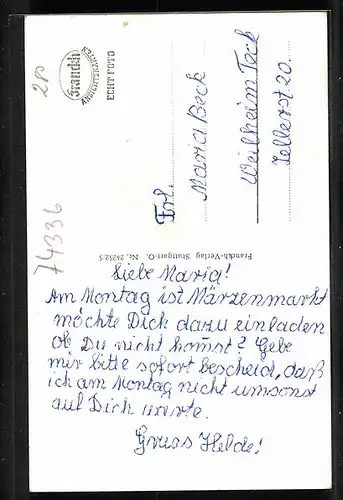 Liebe Maria!
Am Montag ist Märzenmarkt
möchte Dich dazu einladen
ob Du nicht komst? Gebe
mir bitte sofort bescheid, daß
ich am Montag nicht umsonst
auf Dich warte.
Gruss Helde!
Frl.
Maria Beck
Weilheim Teck
Tellerst. 20.
Franckh
ANSICHTSKARTEN
ECHT FOTO
Franckh-Verlag Stuttgart-O. Nr.
280
74336